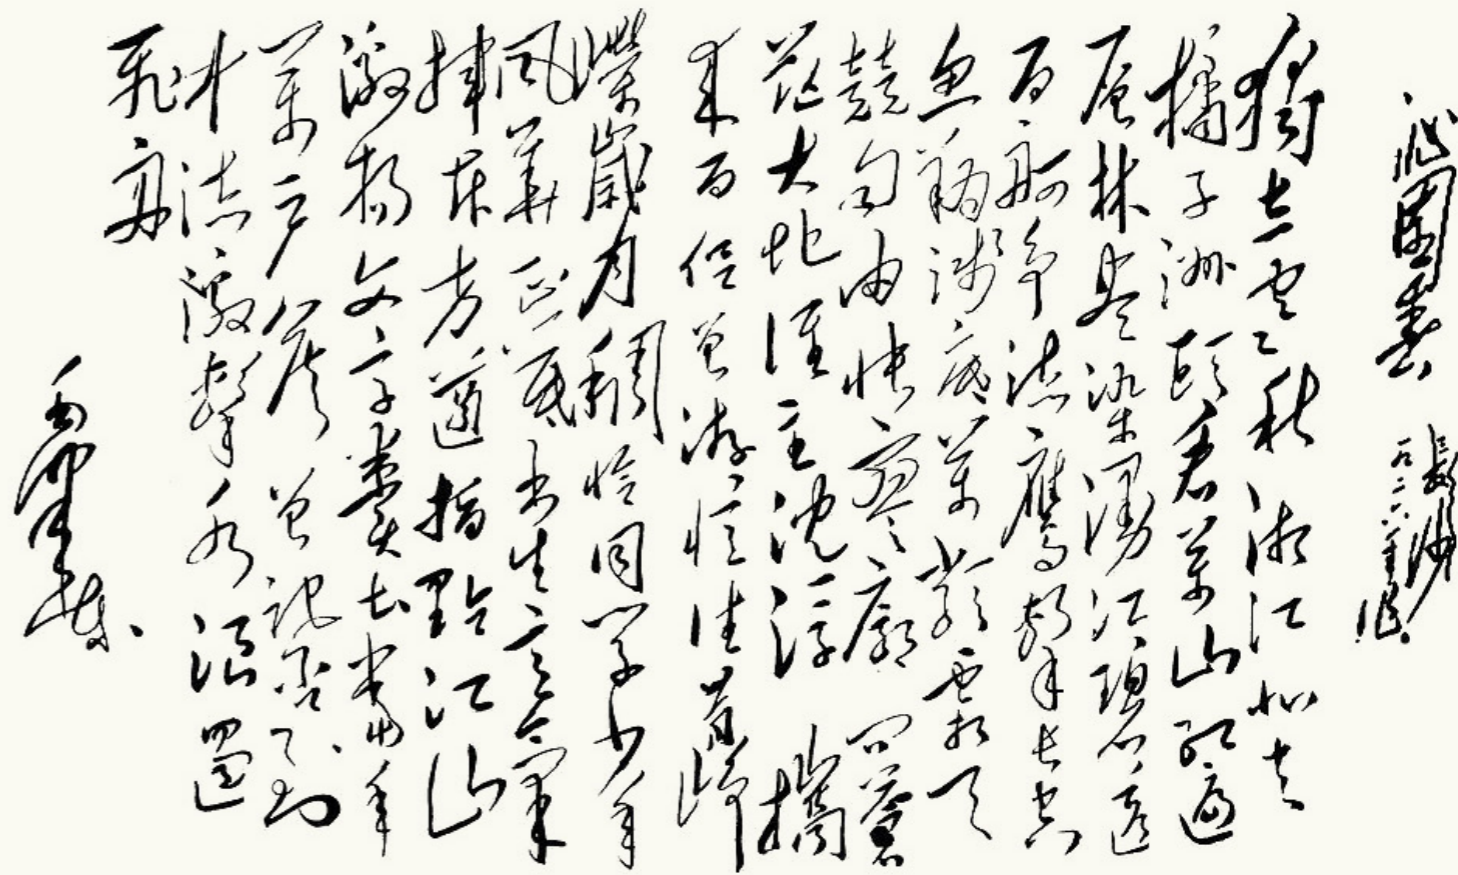 沁園春 長沙
一九二六年作
獨立寒秋湘江北去
橘子洲頭看萬山紅遍
層林盡染漫江碧透
百舸争流鷹擊長空
魚翔淺底萬類霜天
競自由悵寥廓問蒼
茫大地誰主沈浮 攜
來百侣曾游憶往昔崢
嶸歲月稠恰同學少年
風華正茂書生意氣
揮斥方遒指點江山
激揚文字糞土當年
萬户侯曾記否到
中流激擊水浪遏
飛舟
毛澤東